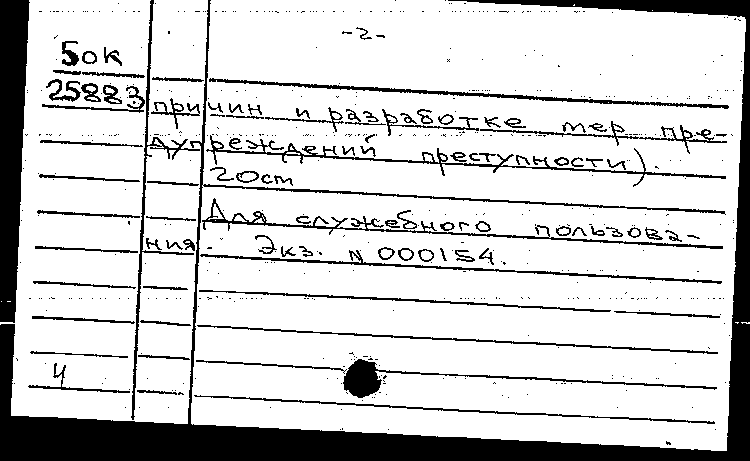 -2-
5ок
25883
причин и разработке мер пре-
дупреждений преступности).
20см
Для служебного пользова-
ния. Экз. N 000154.
4